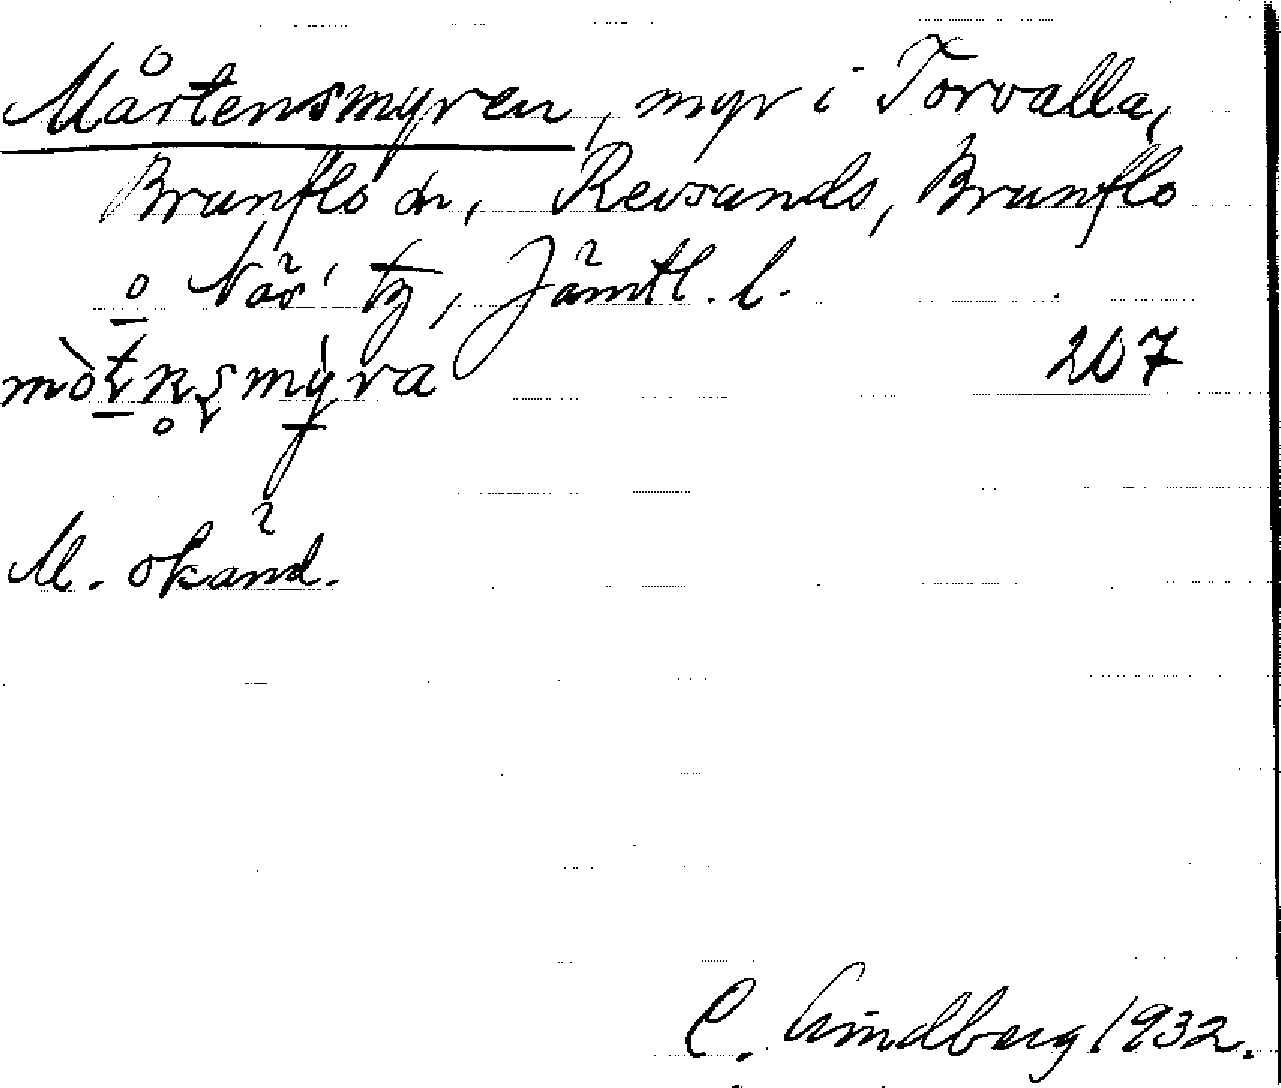 Mårtensmyren, myr i Torvalla,
Brunflo sn, Revsunds, Brunflo
o Näs' tg, Jämtl. l.
207
M. okänd.
C. Lindberg 1932.